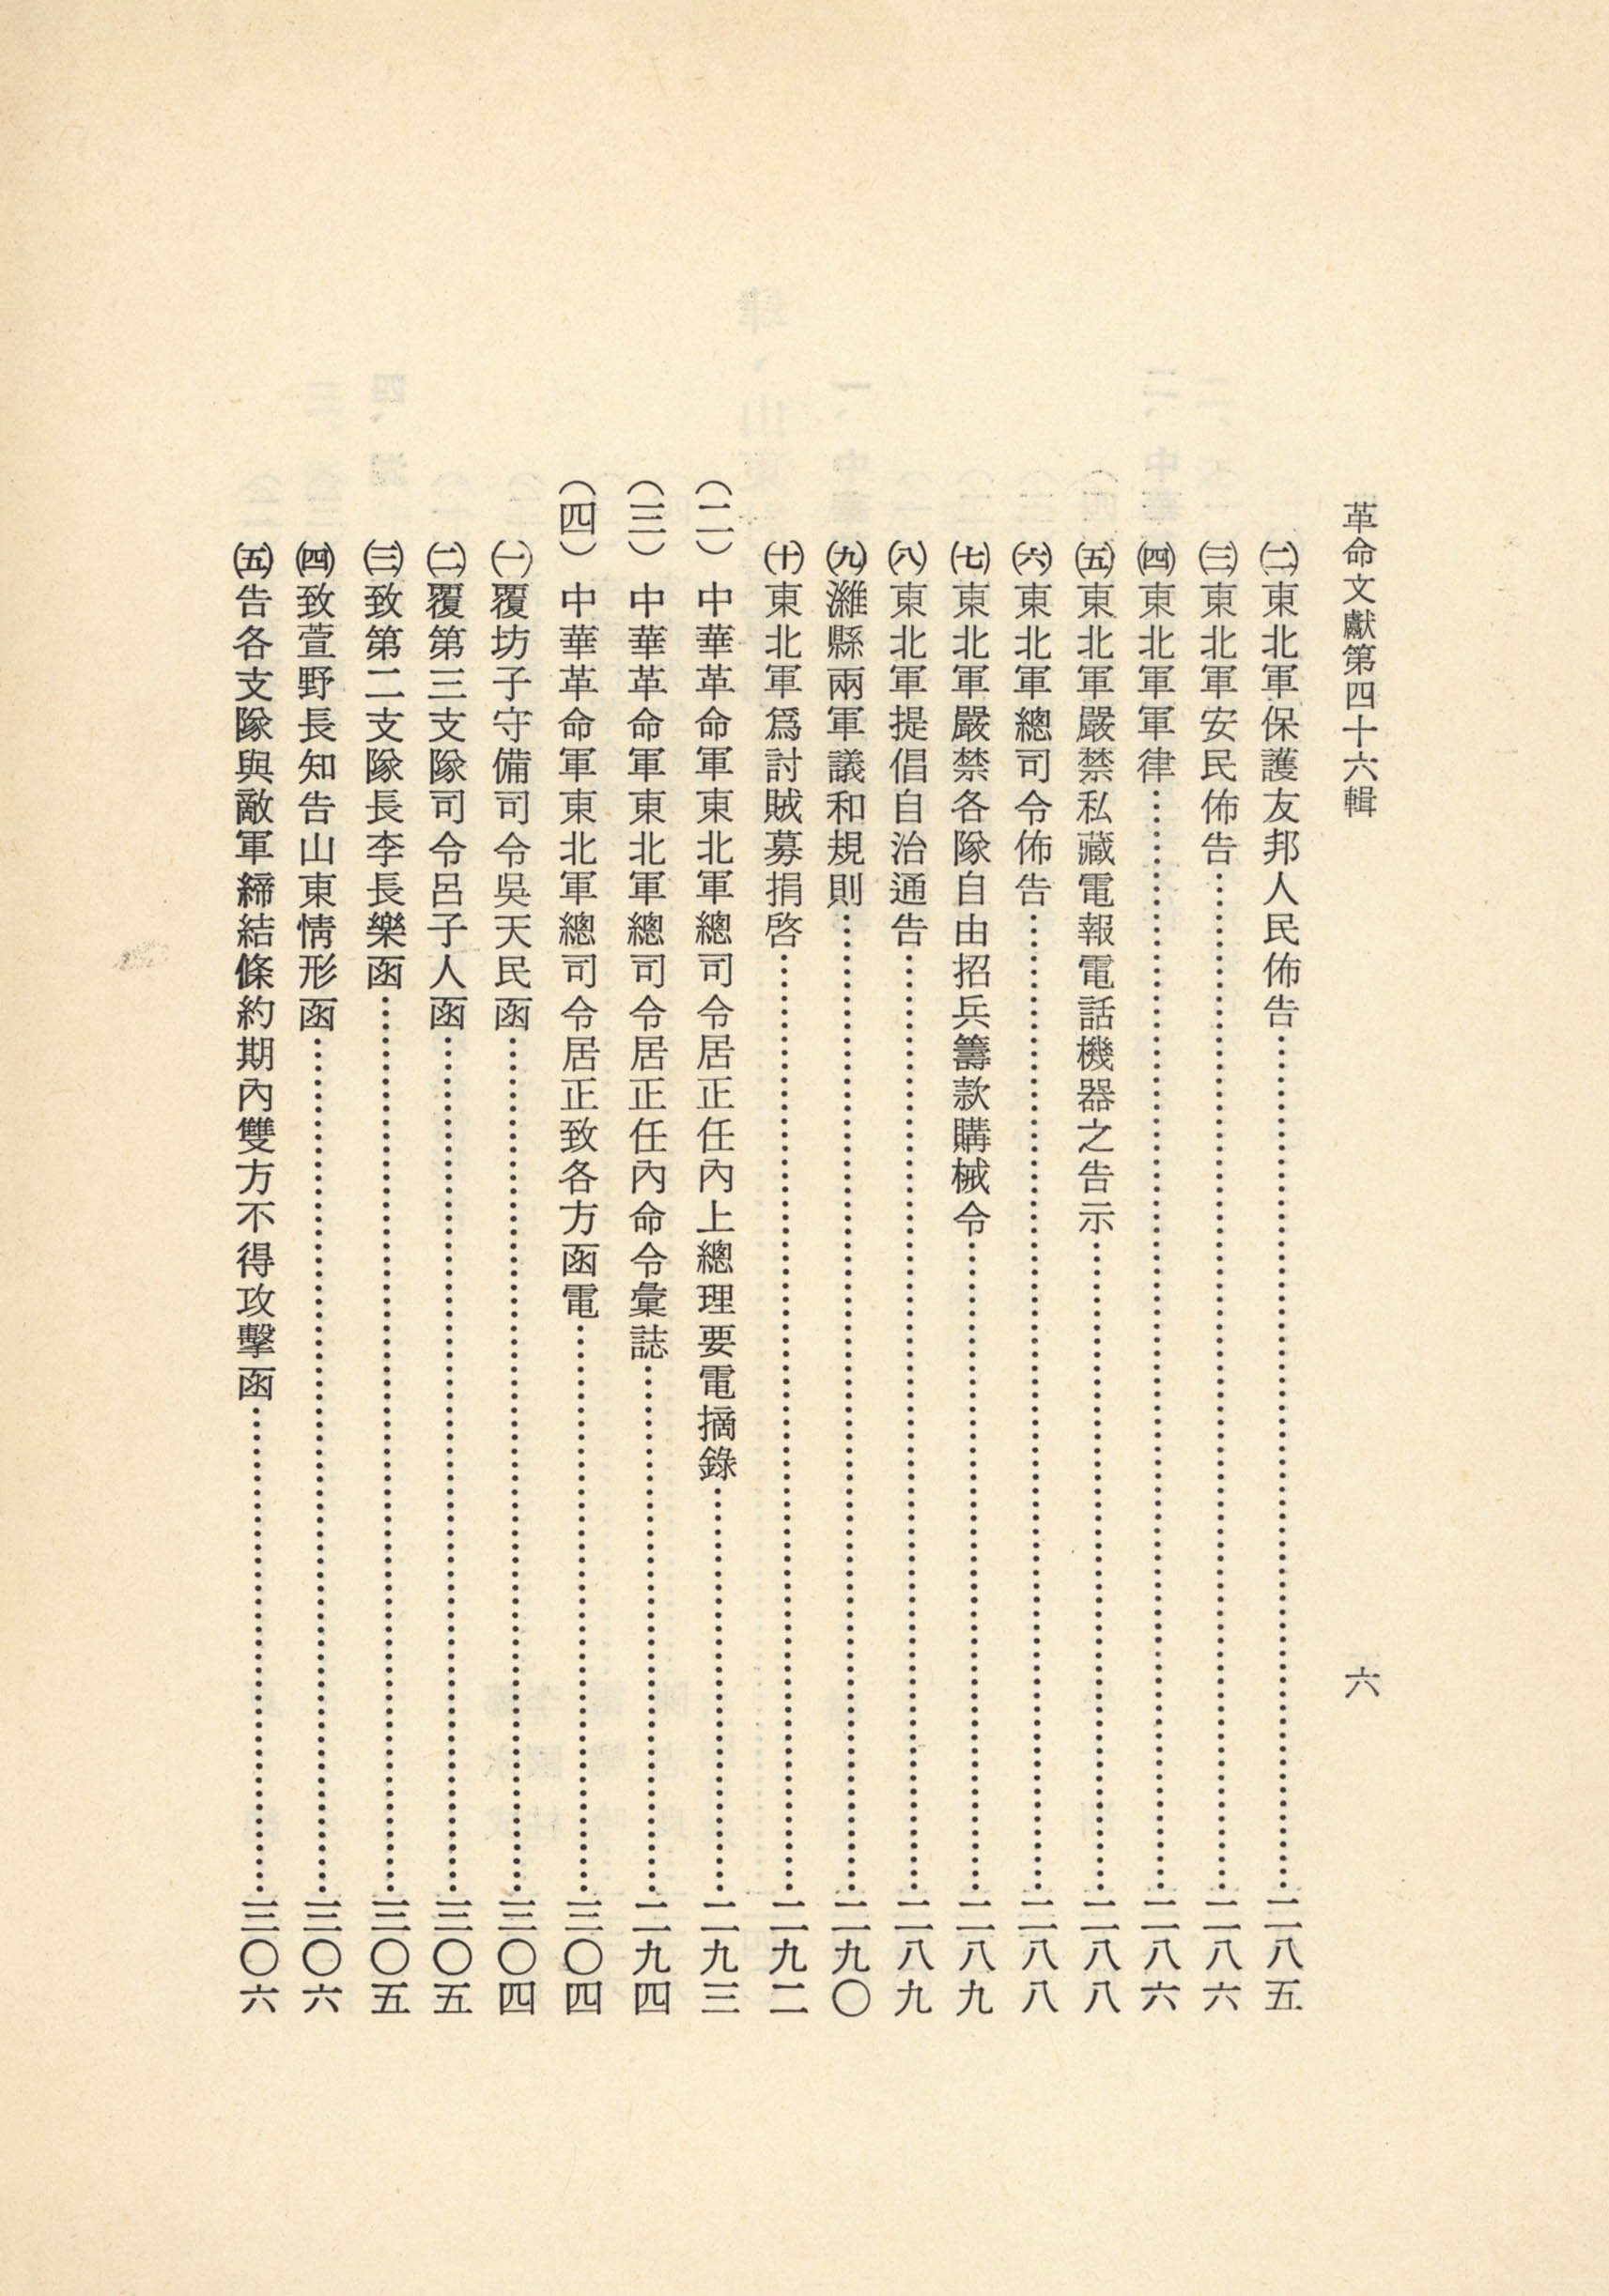 革命文獻第四十六輯
六
㈡東北軍保護友邦人民佈告……二八五
㈢東北軍安民佈告……二八六
㈣東北軍軍律……二八六
㈤東北軍嚴禁私藏電報電話機器之告示……二八八
㈥東北軍總司令佈告……二八八
㈦東北軍嚴禁各隊自由招兵籌款購械令……二八九
㈧東北軍提倡自治通告……二八九
㈨濰縣兩軍議和規則……二九〇
㈩東北軍爲討賊募捐啓……二九二
（二）中華革命軍東北軍總司令居正任內上總理要電摘錄……二九三
（三）中華革命軍東北軍總司令居正任內命令彙誌……二九四
（四）中華革命軍東北軍總司令居正致各方函電……三〇四
㈠覆坊子守備司令吳天民函……三〇四
㈡覆第三支隊司令呂子人函……三〇五
㈢致第二支隊長李長樂函……三〇五
㈣致萱野長知告山東情形函……三〇六
㈤告各支隊與敵軍締結條約期內雙方不得攻擊函……三〇六